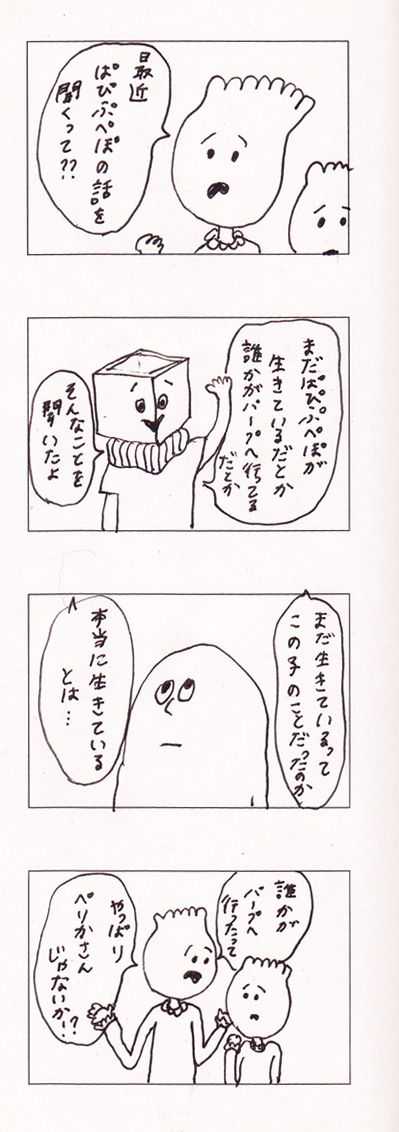 最近
ぱぴぷぺぽの話を
聞くって??
まだぱぴぷぺぽが
生きているだとか
誰かがパープへ行ってる
だとか
そんなことを
聞いたよ
まだ生きているって
この子のことだったのか
本当に生きている
とは…
誰かが
パープへ
行ったって
やっぱり
ぺりかさん
じゃないか!?